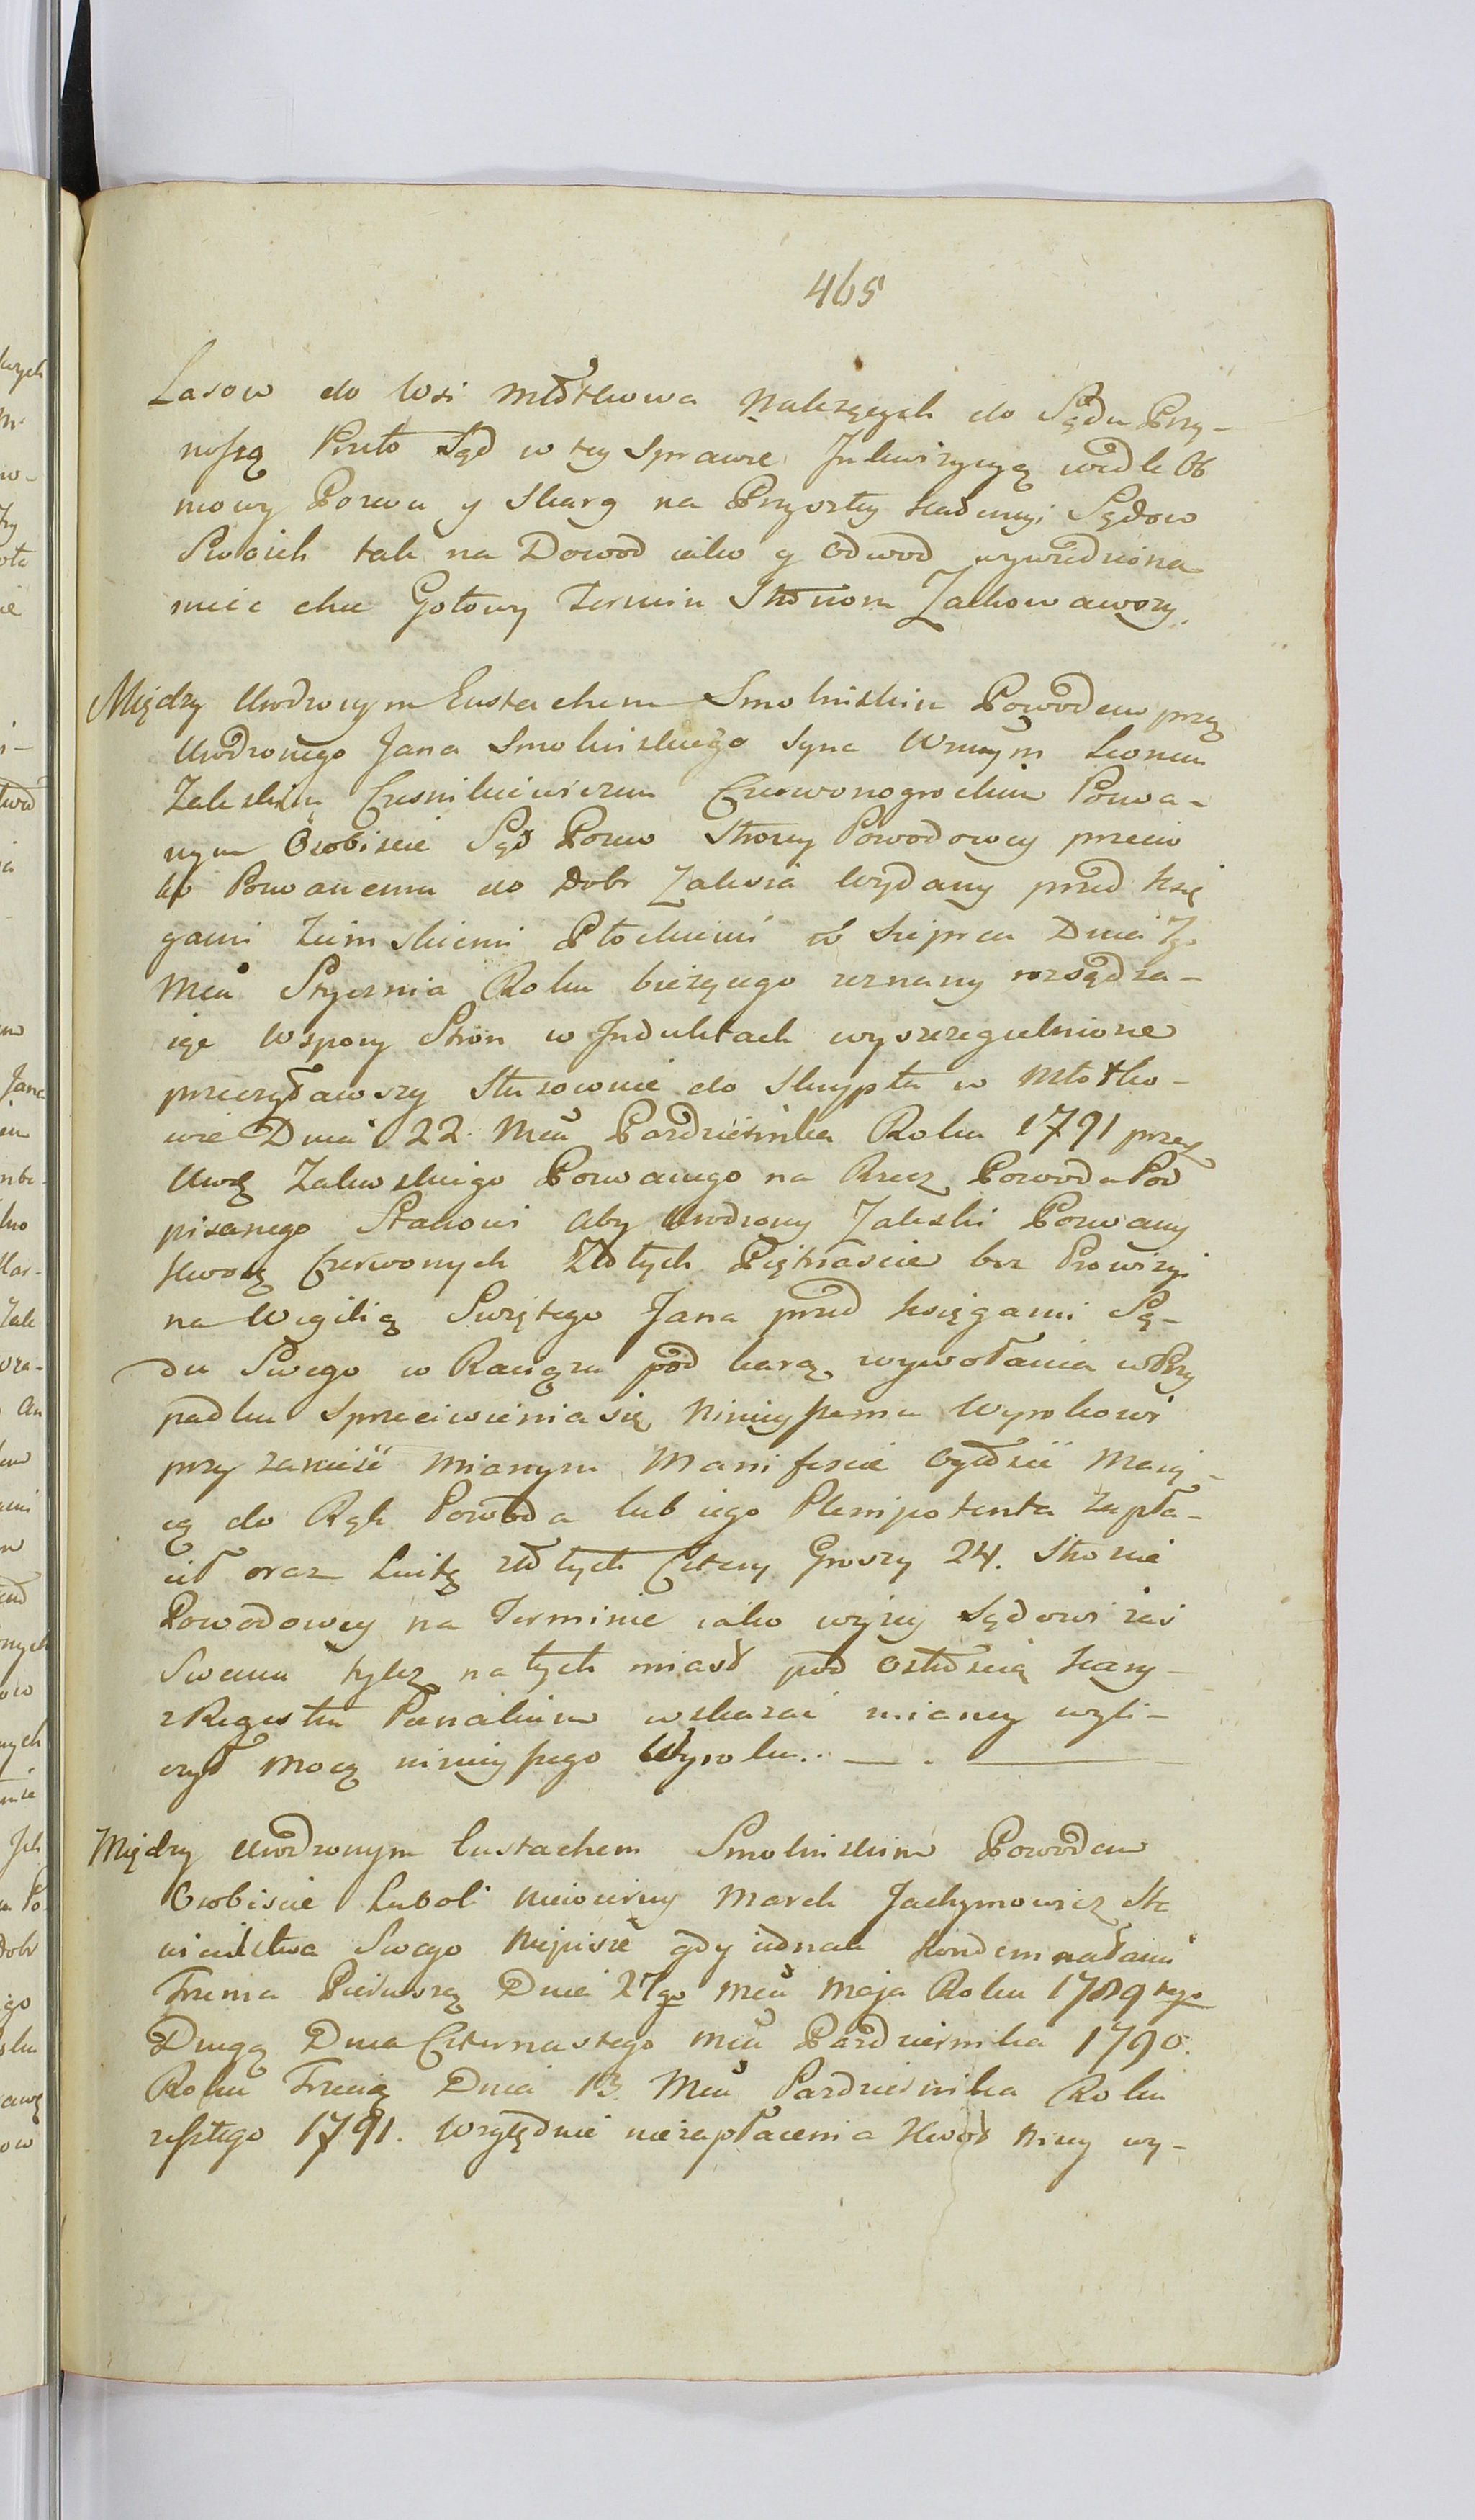 465
Lasow do Wsi Młotkowa Należących do Sądu Przy-
noszą Przeto Sąd w tey Sprawie Inkwizycyą wedle Ob
mowy Pozwu y Skarg na Przyszłey Kadencyi Sądow
Swoich tak na Dowod iako y Odwod wywiedziona
miec chce Gotowy Termin Stronom Zachowawszy.
Między Urodzonym Eustachem Smolinskim Powodem przez
Urodzonego Jana Smolinskiego Syna Urnym Leonem
Zaleskim Czesnikiewiczem Czerwonogrockim Pozwa-
nym Osobiscie Sąd Pozew Strony Powodowey przeciw
ko Pozwanemu do Dobr Zalesia Wydany przed Księ
gami Ziemskiemi Płockiemi w Sieprcu Dnia 7go
Mca Stycznia Roku bieżącego zeznany rozsądza-
iąc W spory Stron w Induktach wyszczegulnione
przeczytawszy Stosownie do Skryptu w Młotko-
wie Dnia 22. Mca Pazdziernika Roku 1791 przez
Urg Zalewskiego Pozwanego na Rzecz Powoda Pod
pisanego Stanowi Aby Urodzony Zaleski Pozwany
Kwotę Czerwonych Złotych Piętnascie bez Prowizyi
na Wigilią Swiętego Jana przed Księgami Są-
du Swego w Raciążu pod karą wywołania w Przy
padku Sprzeciwienia się Ninieyszemu Wyrokowi
przy zanieść Mianym Manifescie Ogłosić Maią-
cą do Rąk Powoda lub iego Plenipotenta Zapła-
cił oraz Luitę złotych Cztery Groszy 24. Stronie
Powodowey na Terminie iako wyżey Sądowi zaś
Swemu tyleż natych miast pod Ostroscią Kary
z Regestru Pœnalium wskazać mianey wyli-
czył Mocą ninieyszego Wyroku.. — . —
Między Urodzonym Eustachem Smolinskim Powodem
Osobiscie Lubo i Niewierny Marek Jachymowicz Sta
wiennictwa Swego Niepisze gdy iednak Kondemnatami
Trzema Pierwszą Dnia 27go Mca Maja Roku 1789tego
Drugą Dnia Czternastego Mca Pazdziernika 1790.
Roku Trzecią Dnia 13 Mca Pazdziernika Roku
zeszłego 1791. Względnie niezapłacenia Kwot Niżey wy-